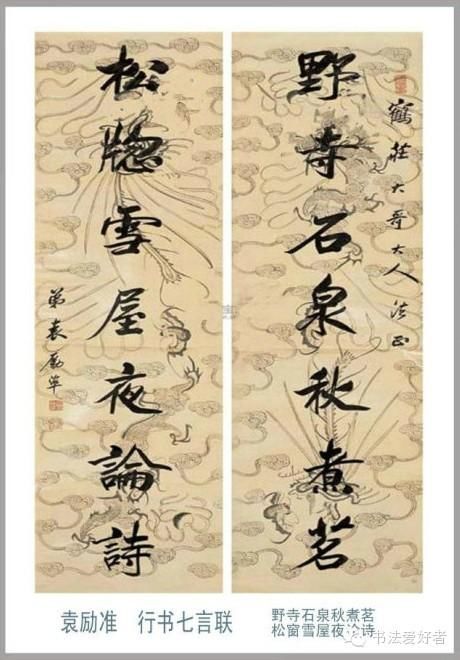 鶴莊大哥大人法正
野寺石泉秋煮茗
松牕雪屋夜論詩
弟袁励準
袁励准 行书七言联
野寺石泉秋煮茗
松窗雪屋夜论诗
书法爱好者